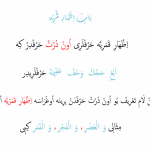 بَابُ اِظْهَارِ قَمَرِيَّه
اِظْهَارِ قَمَرِيَّه حَرْفْلَرِى اُونْ دُرْتْ حَرْفْدِرْ كِه
اَبْغِ حَجَّكَ وَخَفْ عَقِيمَهُ حَرْفْلَرِيدِرْ
لَامِ تَعْرِيفْ بُو اُونْ دُرْتْ حَرْفْدَنْ بِرِينَه اُوغْرَاسَه اِظْهَارِ قَمَرِيَّه
مِثَالِى وَ الْعَصْرِ، وَ الْفَجْرِ، وَ الْقَمَرِ كِبِى